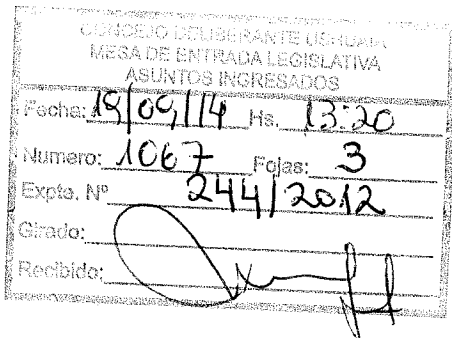 CONCEJO DELIBERANTE USHUAIA
MESA DE ENTRADA LEGISLATIVA
ASUNTOS INGRESADOS
Fecha: 19/09/14 Hs. 13:20
Numero: 1067 Fojas: 3
Expte. Nº 244/2012
Girado:
Recibido: